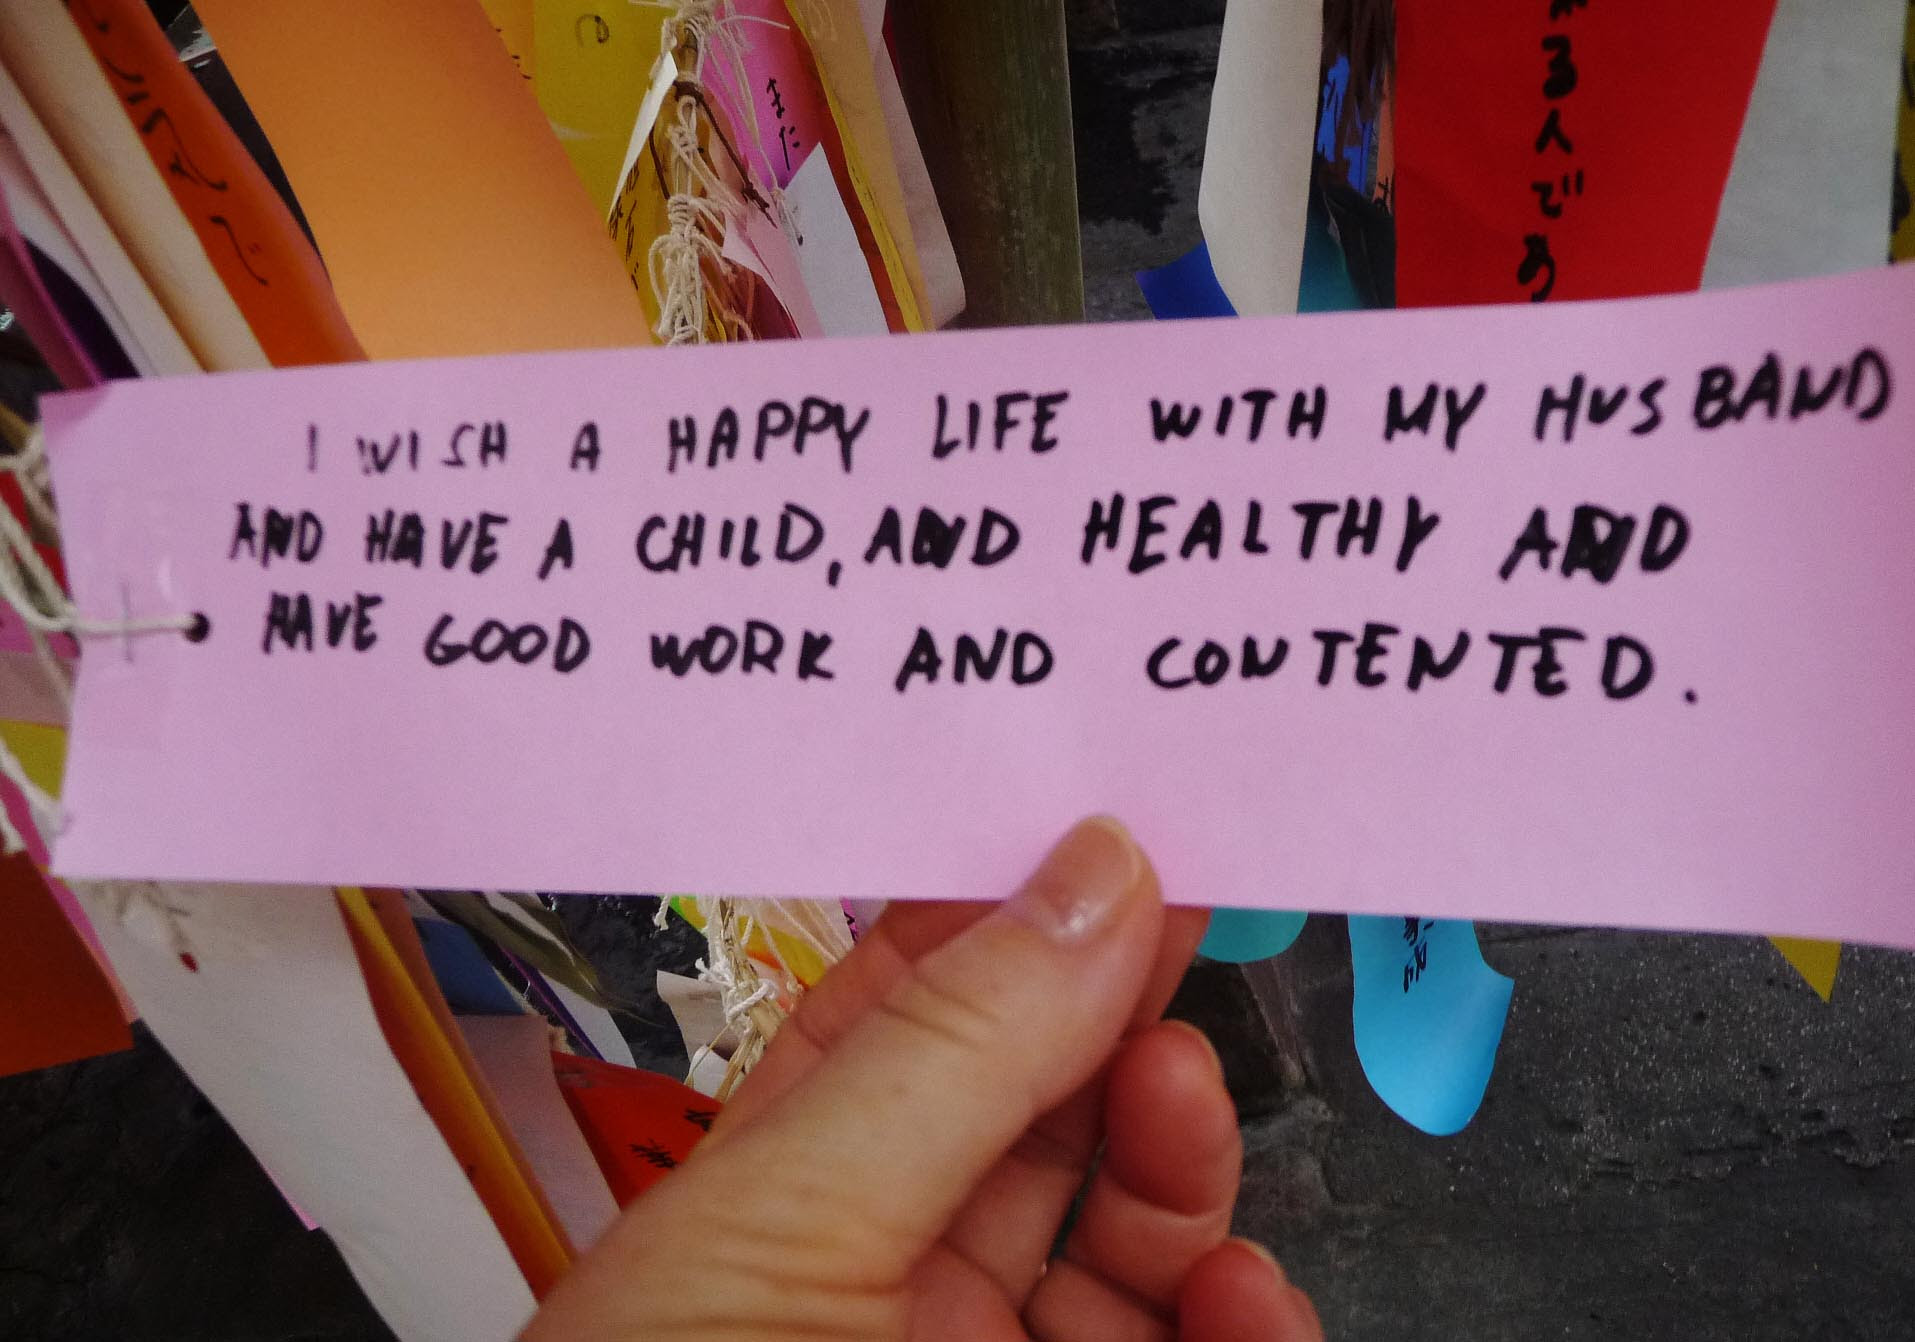 I WISH A HAPPY LIFE WITH MY HUSBAND
AND HAVE A CHILD, AND HEALTHY AND
HAVE GOOD WORK AND CONTENTED.
また
る人であ